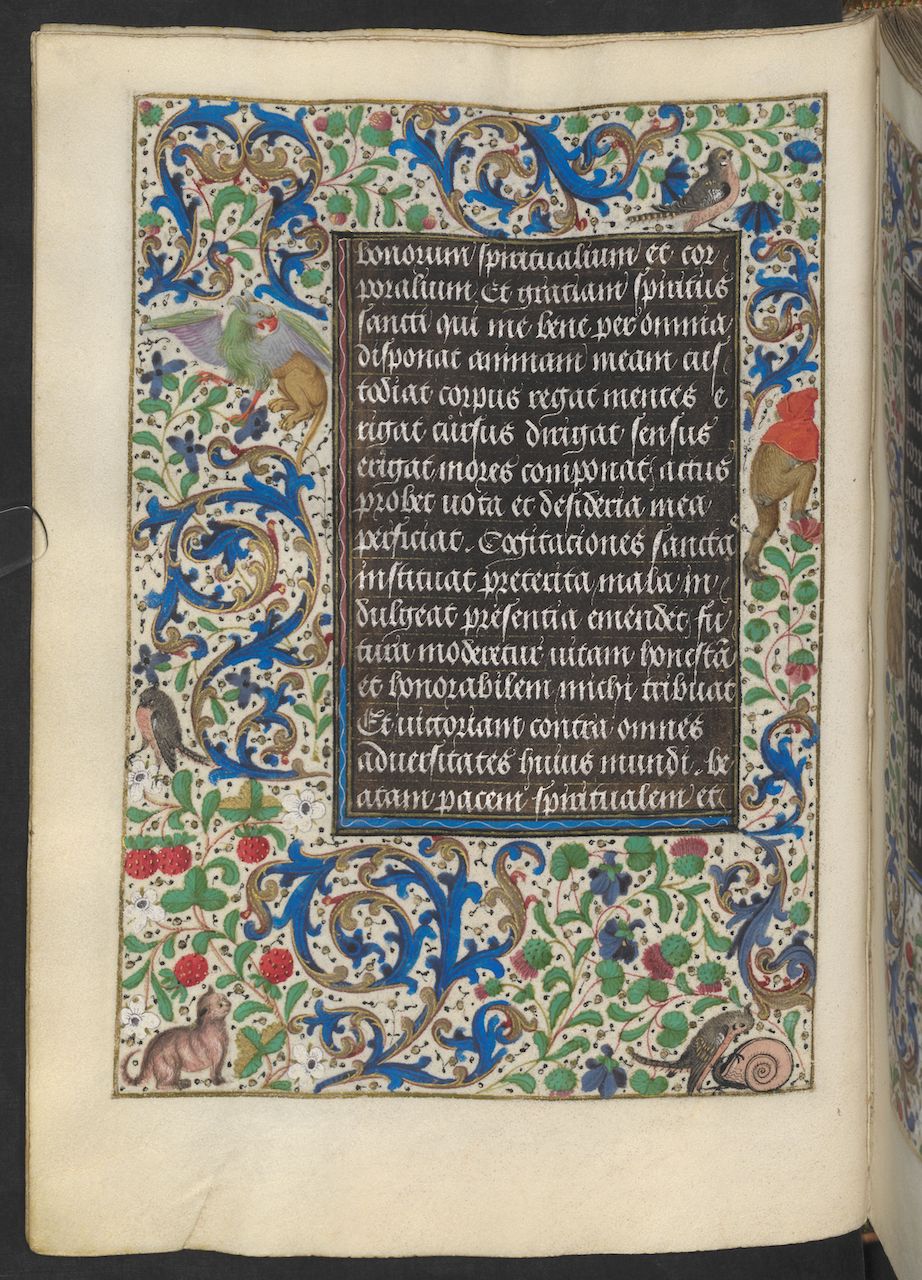 bonorum spiritualium et cor
poralium Et gratiam spiritus
sancti qui me bene per omnia
disponat animam meam cus
todiat corpus regat mentes e
rigat cursus dirigat sensus
erigat mores componat actus
probet uota et desideria mea
perficiat. Cogitaciones sancta
instituat preterita mala in
dulgeat presentia emendet fu
tura moderetur uitam honestā
et honorabilem michi tribuat
Et uictoriam contra omnes
aduersitates huius mundi. be
atam pacem spiritualem et